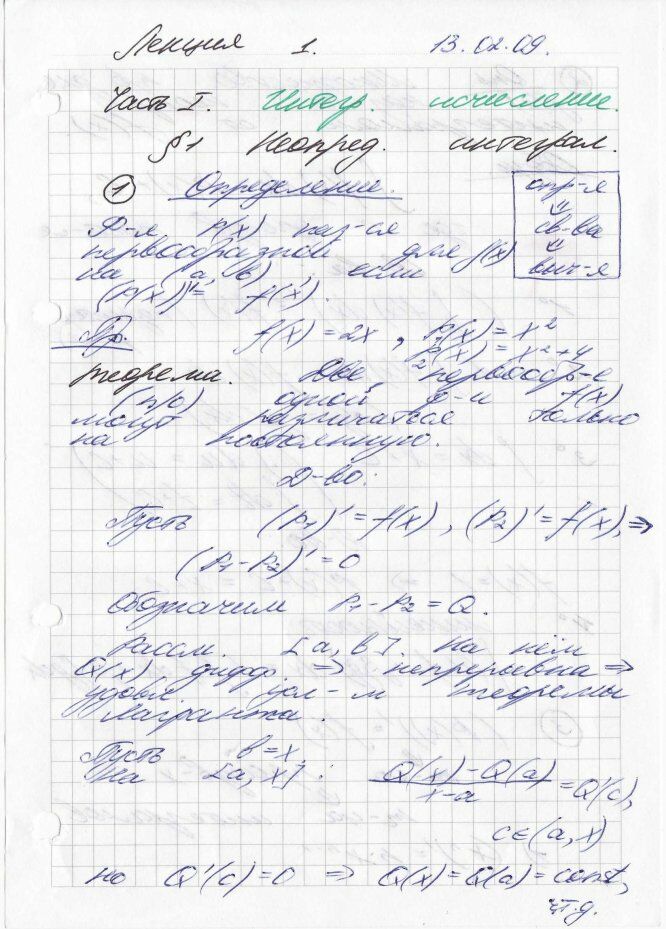 Лекция 1. 13.02.09.
Часть I. Интегр. исчисление.
§1 Неопред. интеграл.
① Определение.
опр-я
⇓
св-ва
⇓
выч-я
Ф-я P(x) наз-ся
первообразной для f(x)
на (a, b), если
(P(x))' = f(x).
Пр. f(x) = 2x, P₁(x) = x²
P₂(x) = x² + 4
Теорема. Две первообр-е
(п/о) одной ф-и f(x)
могут различаться только
на постоянную.
Д-во:
Пусть (P₁)' = f(x), (P₂)' = f(x), ⇒
(P₁ - P₂)' = 0
Обозначим P₁ - P₂ = Q.
Рассм. [a, b]. На нём
Q(x) дифф. ⇒ непрерывна ⇒
удовл. усл-м теоремы
Лагранжа.
Пусть b = x,
На [a, x]: (Q(x) - Q(a))/(x - a) = Q'(c),
c ∈ (a, x)
но Q'(c) = 0 ⇒ Q(x) = Q(a) = const,
ч.т.д.